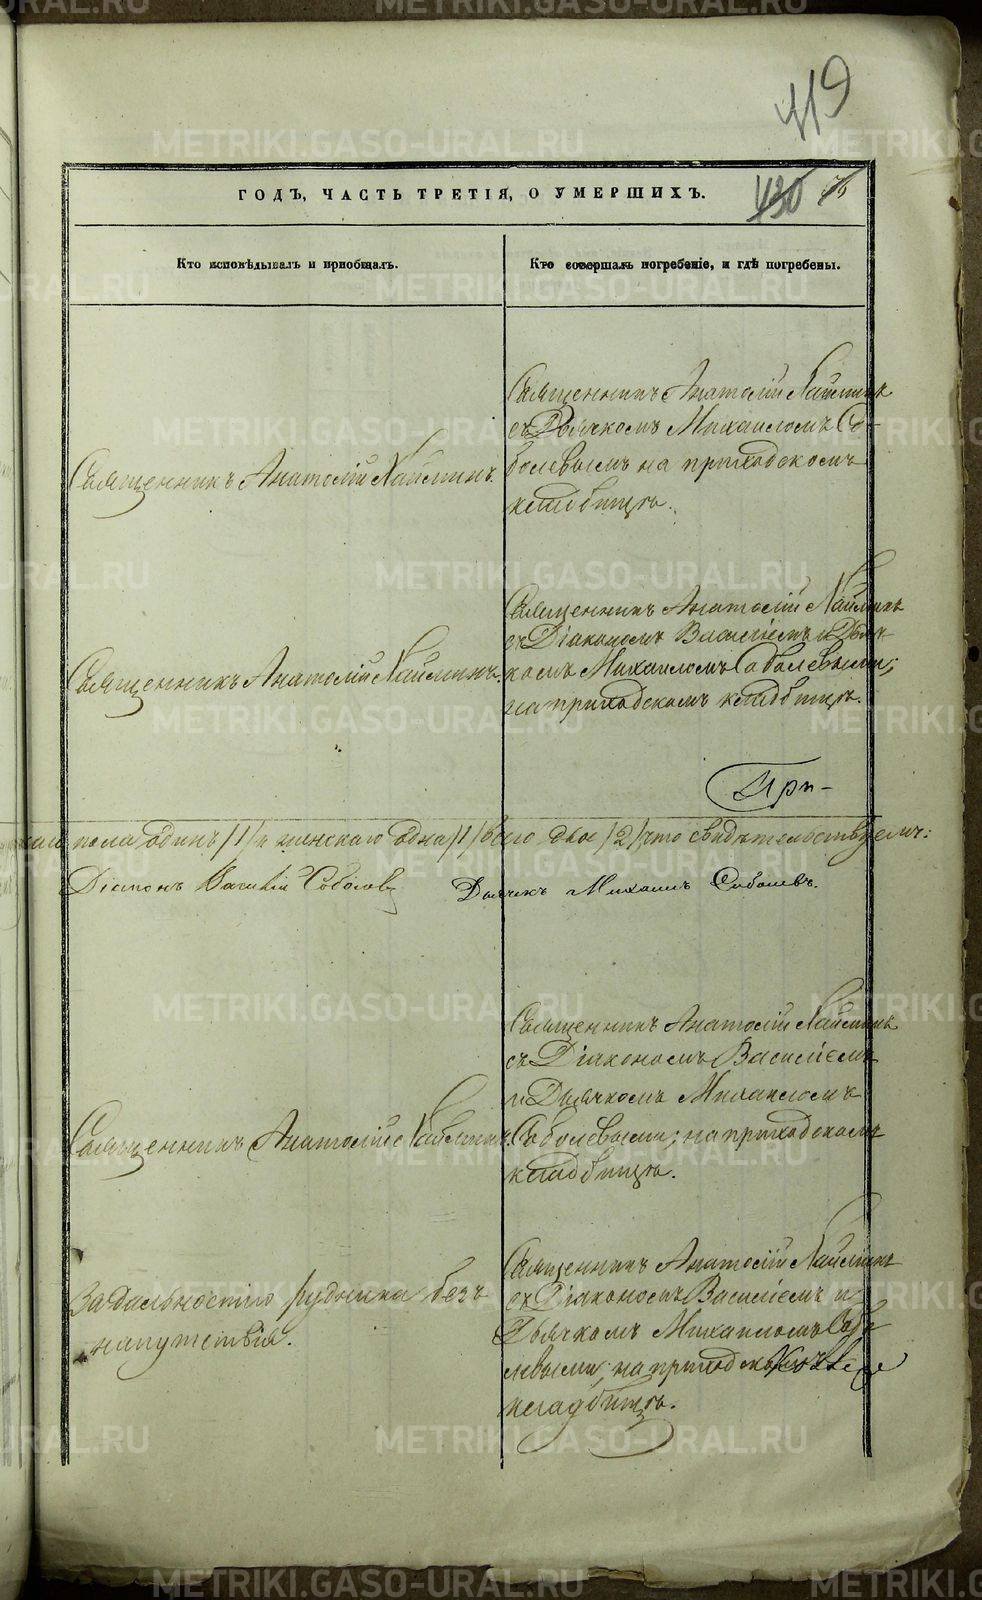 419
ГОДЪ, ЧАСТЬ ТРЕТІЯ, О УМЕРШИХЪ.
430
Кто исповѣдывалъ и пріобщалъ.
Кто совершалъ погребеніе, и гдѣ погребены.
Священникъ Анатолій Наймшинъ.
Священникъ Анатолій Наймшинъ
съ Дьячкомъ Михаиломъ Со-
болевымъ на приходскомъ
кладбищѣ.
Священникъ Анатолій Наймшинъ.
Священникъ Анатолій Наймшинъ
съ Діакономъ Василіемъ и Дьяч-
комъ Михаиломъ Соболевыми;
на приходскомъ кладбищѣ.
При-
пола одинъ /1/ и женскаго одна /1/ всего двое /2/ что свидѣтельствуемъ:
Діаконъ Василій Соболевъ
Дьячекъ Михаилъ Соболевъ.
Священникъ Анатолій Наймшинъ.
Священникъ Анатолій Наймшинъ
съ Діакономъ Василіемъ
и Дьячкомъ Михаиломъ
Соболевыми; на приходскомъ
кладбищѣ.
За дальностію рудника безъ
напутствія.
Священникъ Анатолій Наймшинъ
съ Діакономъ Василіемъ и
Дьячкомъ Михаиломъ Собо
левыми; на приходскомъ
кладбищѣ.
METRIKI.GASO-URAL.RU